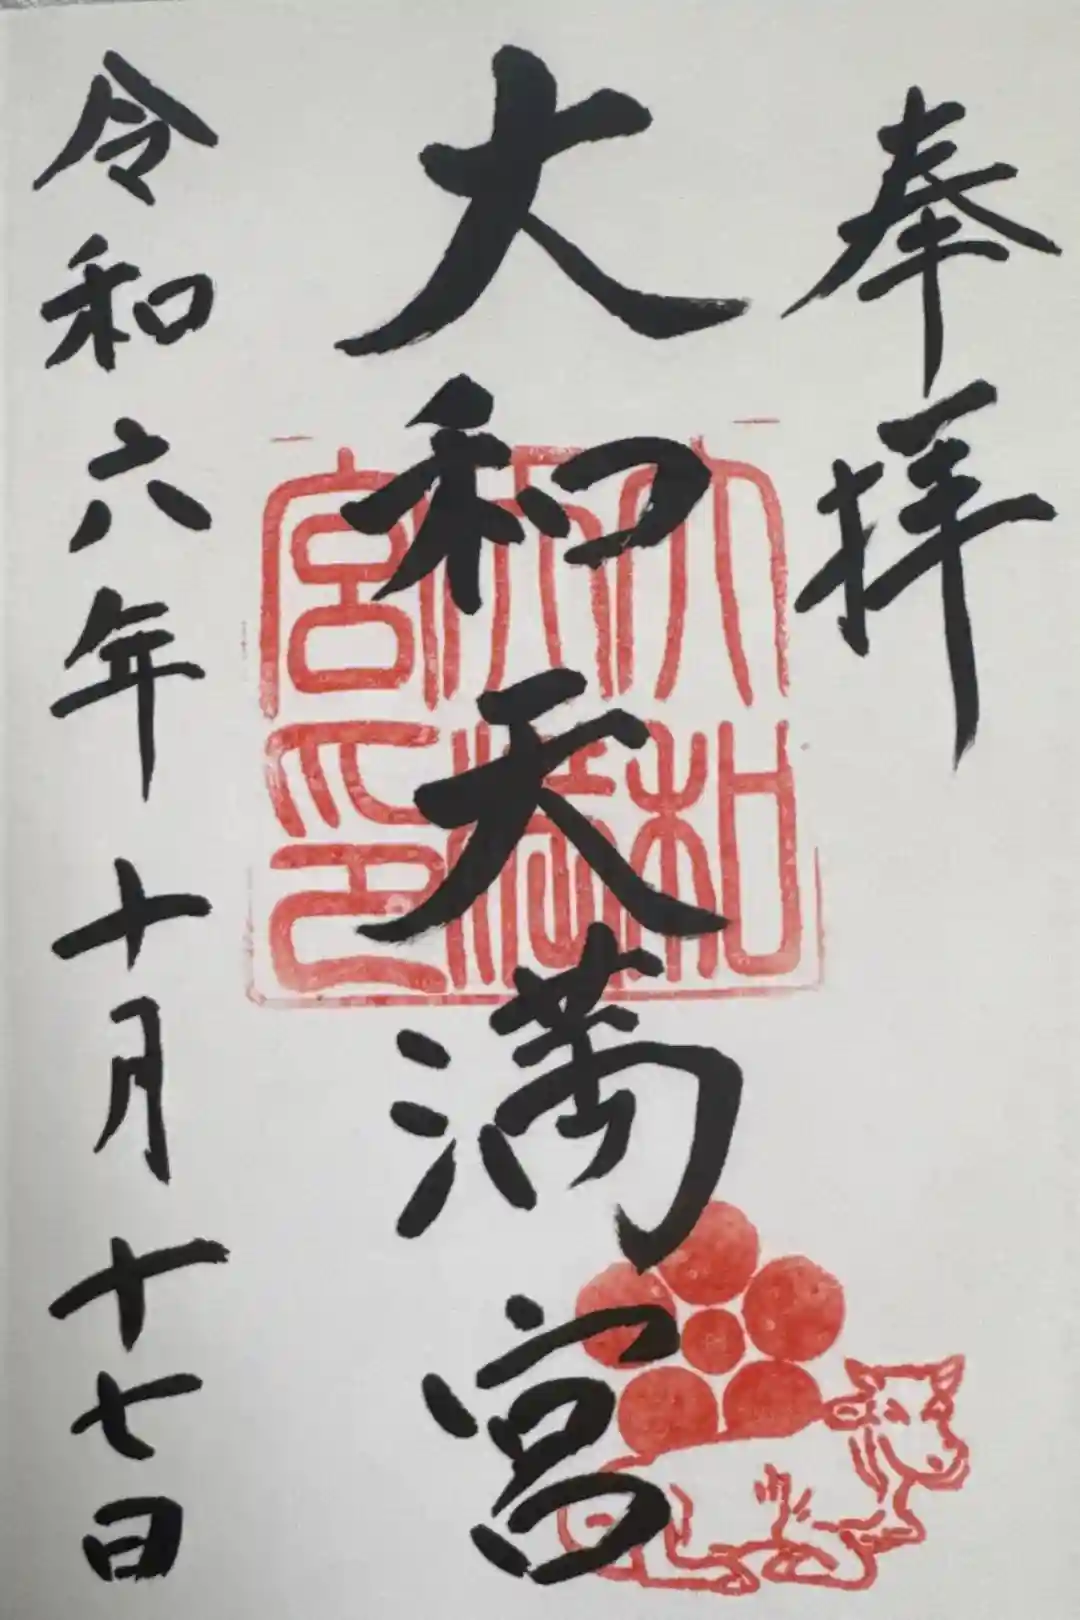 奉拝
大和天満宮
大和天満宮印
令和六年十月十七日